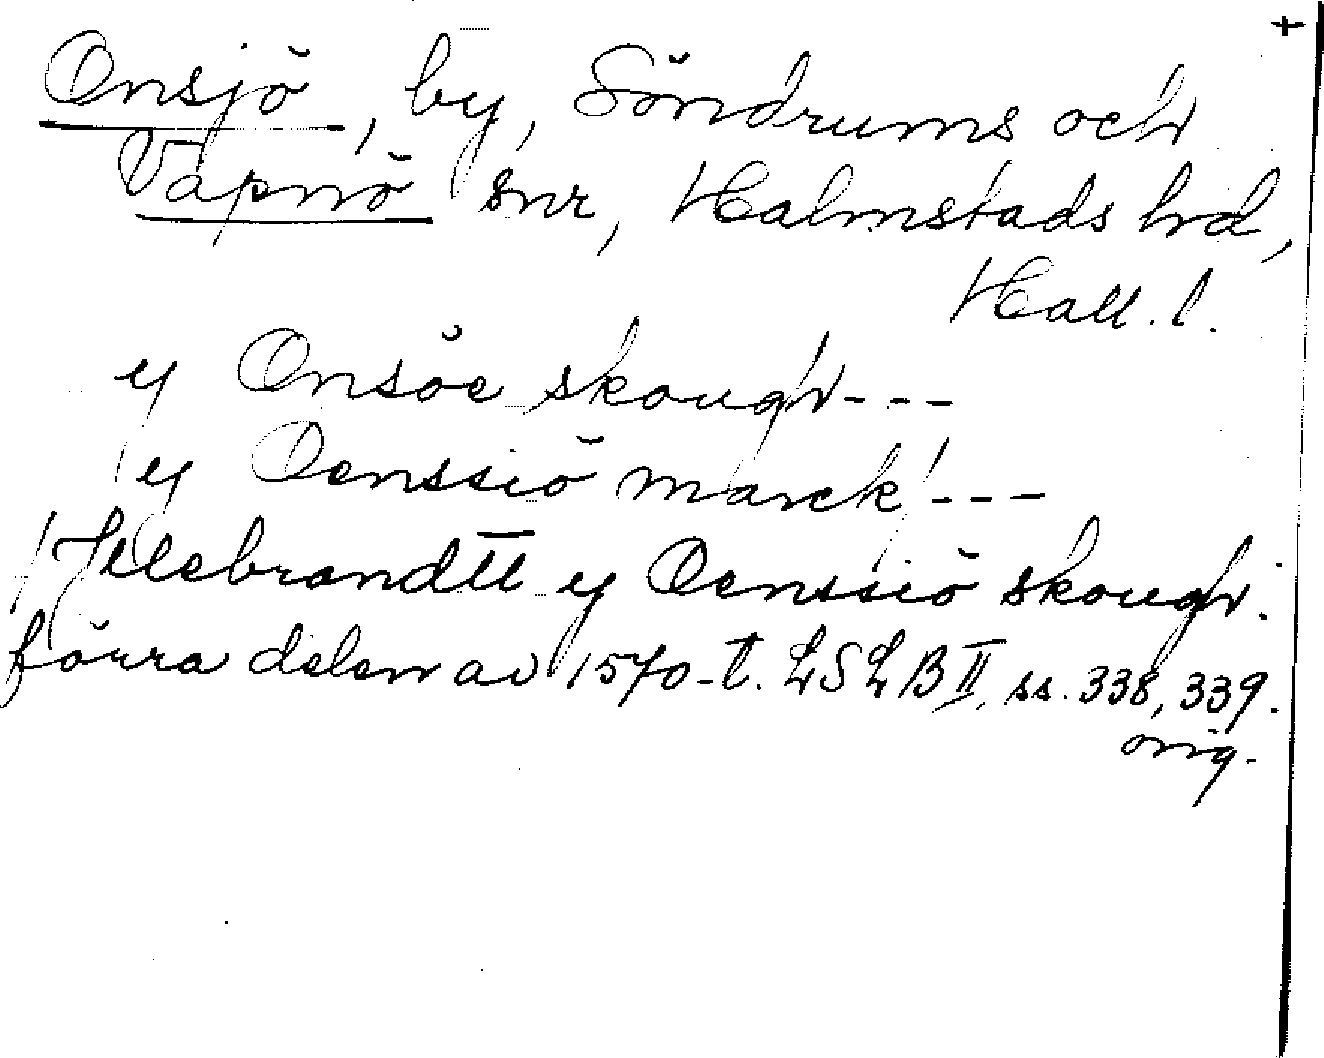 +
Onsjö, by, Söndrums och
Vapnö snr, Halmstads hd,
Hall. l.
y Onsöe skough---
y Oenssiö marck---
Hillebrandtt y Oenssiö skough.
förra delen av 1570-t. LSLB II, ss. 338, 339.
orig.